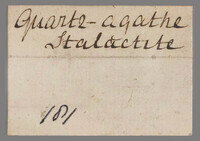 Quartz-agathe
Stalactite
181